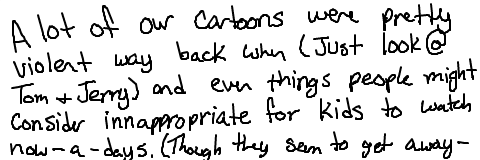 A lot of our cartoons were pretty
violent way back when (Just look @
Tom + Jerry) and even things people might
consider innappropriate for kids to watch
now-a-days. (Though they seem to get away-